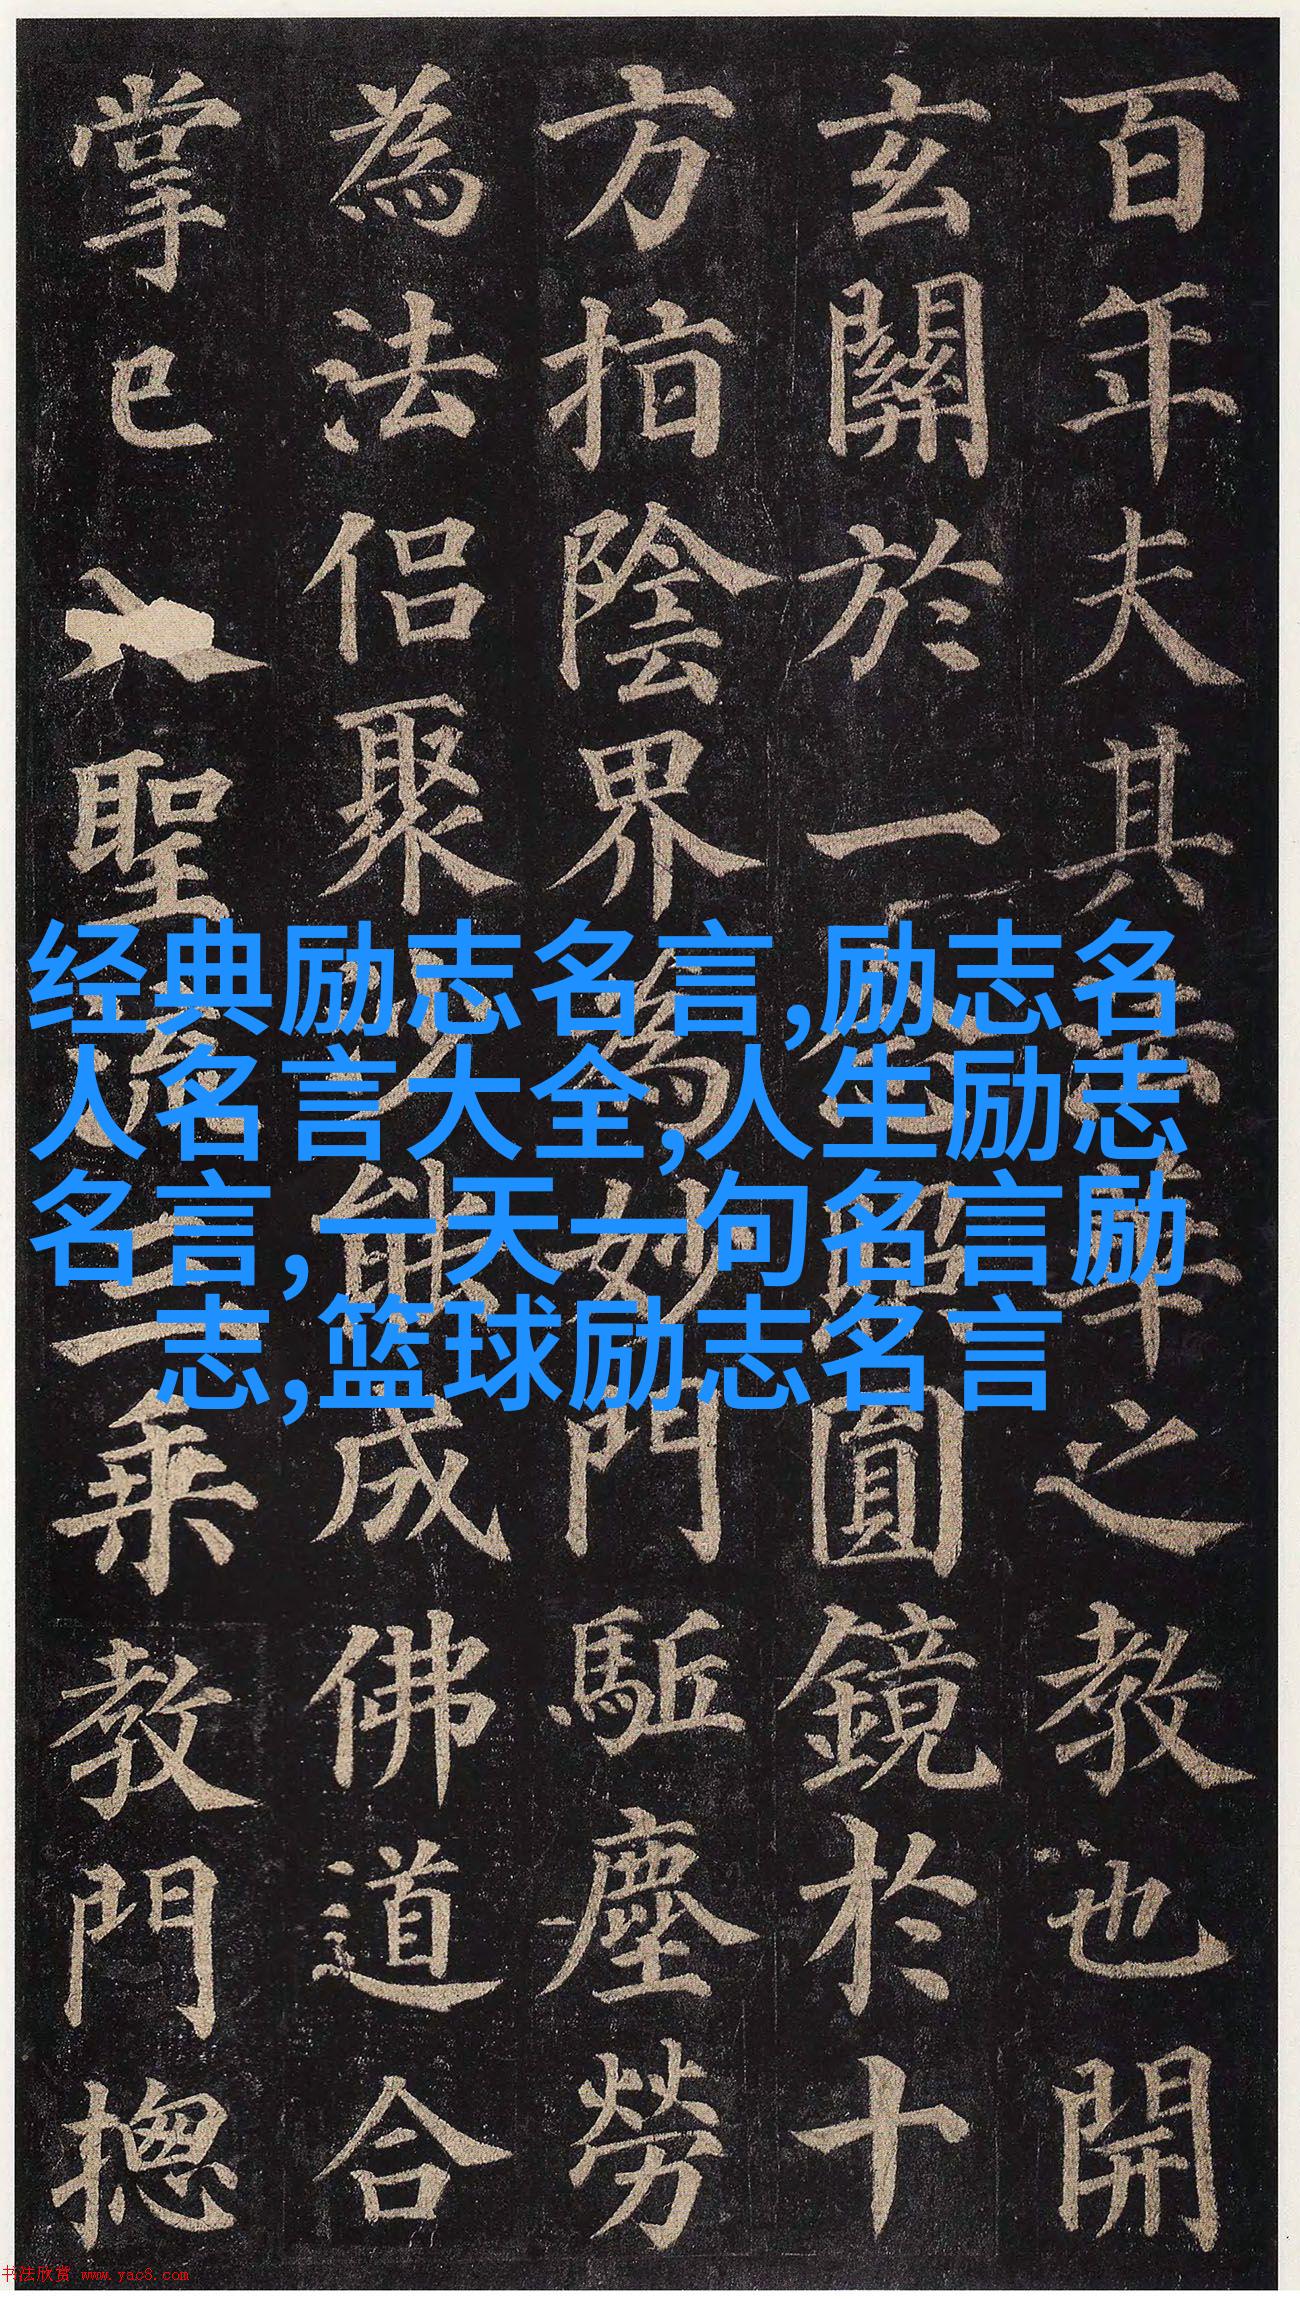 百年夫其法華之教也開
玄關於一念照圓鏡於十
方指陰界為妙門駈塵勞
為法侶聚沙能成佛道合
掌已入聖流三乘教門揔
经典励志名言,励志名
人名言大全,人生励志
名言,一天一句名言励
志,篮球励志名言
书法欣赏 www.yac8.com